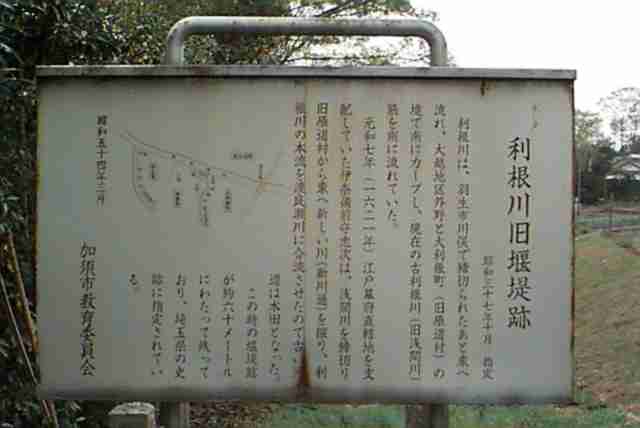 利根川旧堰堤跡
昭和三十七年十月 指定
利根川は、羽生市川俣で締切られたあと東へ
流れ、大越地区外野と大利根町(旧原道村)の
境で南にカーブし、現在の古利根川(旧浅間川)
筋を南に流れていた。
元和七年(一六二一年)江戸幕府直轄地を支
配していた伊奈備前守忠次は、浅間川を締切り
旧原道村から東へ新しい川(新川通)を掘り、利
根川の本流を渡良瀬川に合流させたので古い
辺は水田となった。
この時の堰堤跡
が約六十メートル
にわたって残って
おり、埼玉県の史
跡に指定されてい
る。
昭和五十四年二月
加須市教育委員会